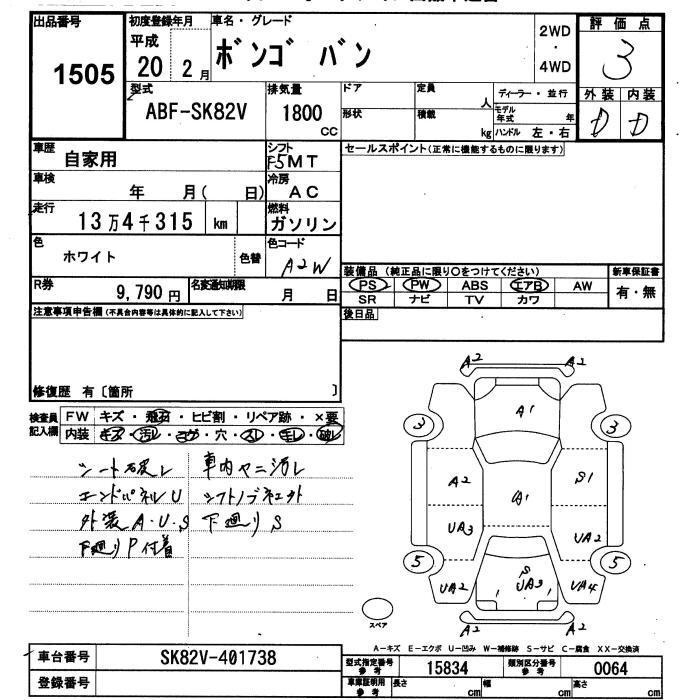 出品番号
1505
初度登録年月
平成
20 2月
車名・グレード
ボンゴ バン
2WD
・
4WD
評価点
3
外装 内装
D D
型式
ABF-SK82V
排気量
1800
CC
ドア
定員
人
形状
積載
kg
ディーラー・並行
モデル年式 年
ハンドル 左・右
車歴
自家用
シフト
F5MT
セールスポイント(正常に機能するものに限ります)
車検
年 月( 日)
冷房
AC
走行
13万4千315 km
燃料
ガソリン
色
ホワイト
色替
色コード
A2W
R券
9,790円
名変通知期限
月 日
装備品(純正品に限り○をつけてください)
PS PW ABS エアB AW
SR ナビ TV カワ
新車保証書
有・無
後日品
注意事項申告欄(不具合内容等は具体的に記入して下さい)
修復歴 有〔箇所 〕
検査員記入欄
FW キズ・飛石・ヒビ割・リペア跡・×要
内装 キズ・汚レ・コゲ・穴・スレ・モレ・破レ
シート破レ
車内ヤニ汚レ
エンドパネルU
シフトノブキズ
外装A・U・S
下廻りS
下廻りP付着
A2 A2
A1
3 3
A2
A1
S1
UA3
UA2
5 5
UA2
S
UA3
UA4
A2 A2
スペア
A-キズ E-エクボ U-凹み W-補修跡 S-サビ C-腐食 XX-交換済
車台番号
SK82V-401738
登録番号
型式指定番号
参考
15834
類別区分番号
参考
0064
車庫証明用
参考
長さ cm
幅 cm
高さ cm